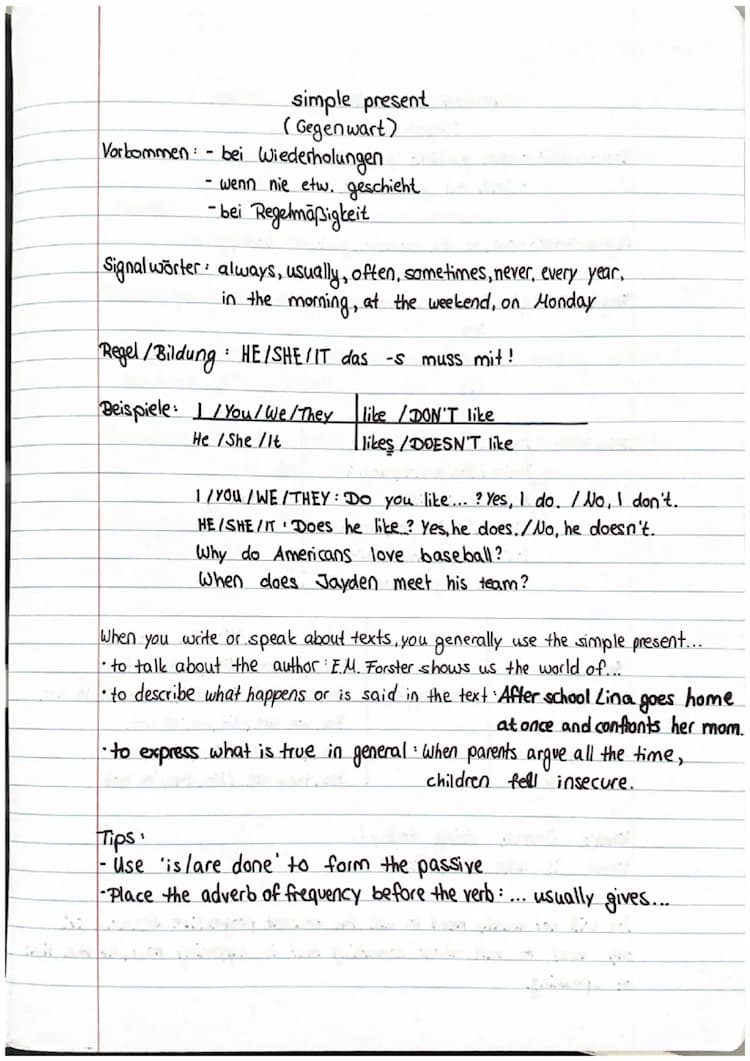 simple present
(Gegenwart)
Vorkommen: - bei Wiederholungen
- wenn nie etw. geschieht
- bei Regelmäßigkeit
Signalwörter: always, usually, often, sometimes, never, every year,
in the morning, at the weekend, on Monday
Regel/Bildung: HE/SHE/IT das -s muss mit!
Beispiele: I/You/We/They like/DON'T like
He/She/It likes/DOESN'T like
I/YOU/WE/THEY: Do you like...? Yes, I do. /No, I don't.
HE/SHE/IT: Does he like..? Yes, he does./No, he doesn't.
Why do Americans love baseball?
When does Jayden meet his team?
When you write or speak about texts, you generally use the simple present...
• to talk about the author: E.M. Forster shows us the world of...
• to describe what happens or is said in the text: After school Lina goes home
at once and confronts her mom.
• to express what is true in general: When parents argue all the time,
children fell insecure.
Tips:
- Use 'is/are done' to form the passive
- Place the adverb of frequency before the verb: ... usually gives...